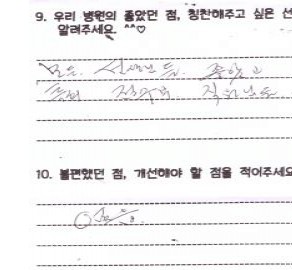 9. 우리 병원의 좋았던 점, 칭찬해주고 싶은 선
알려주세요. ^^♡
모든 선생님들 좋았고
특히 접수
10. 불편했던 점, 개선해야 할 점을 적어주세요
없음.